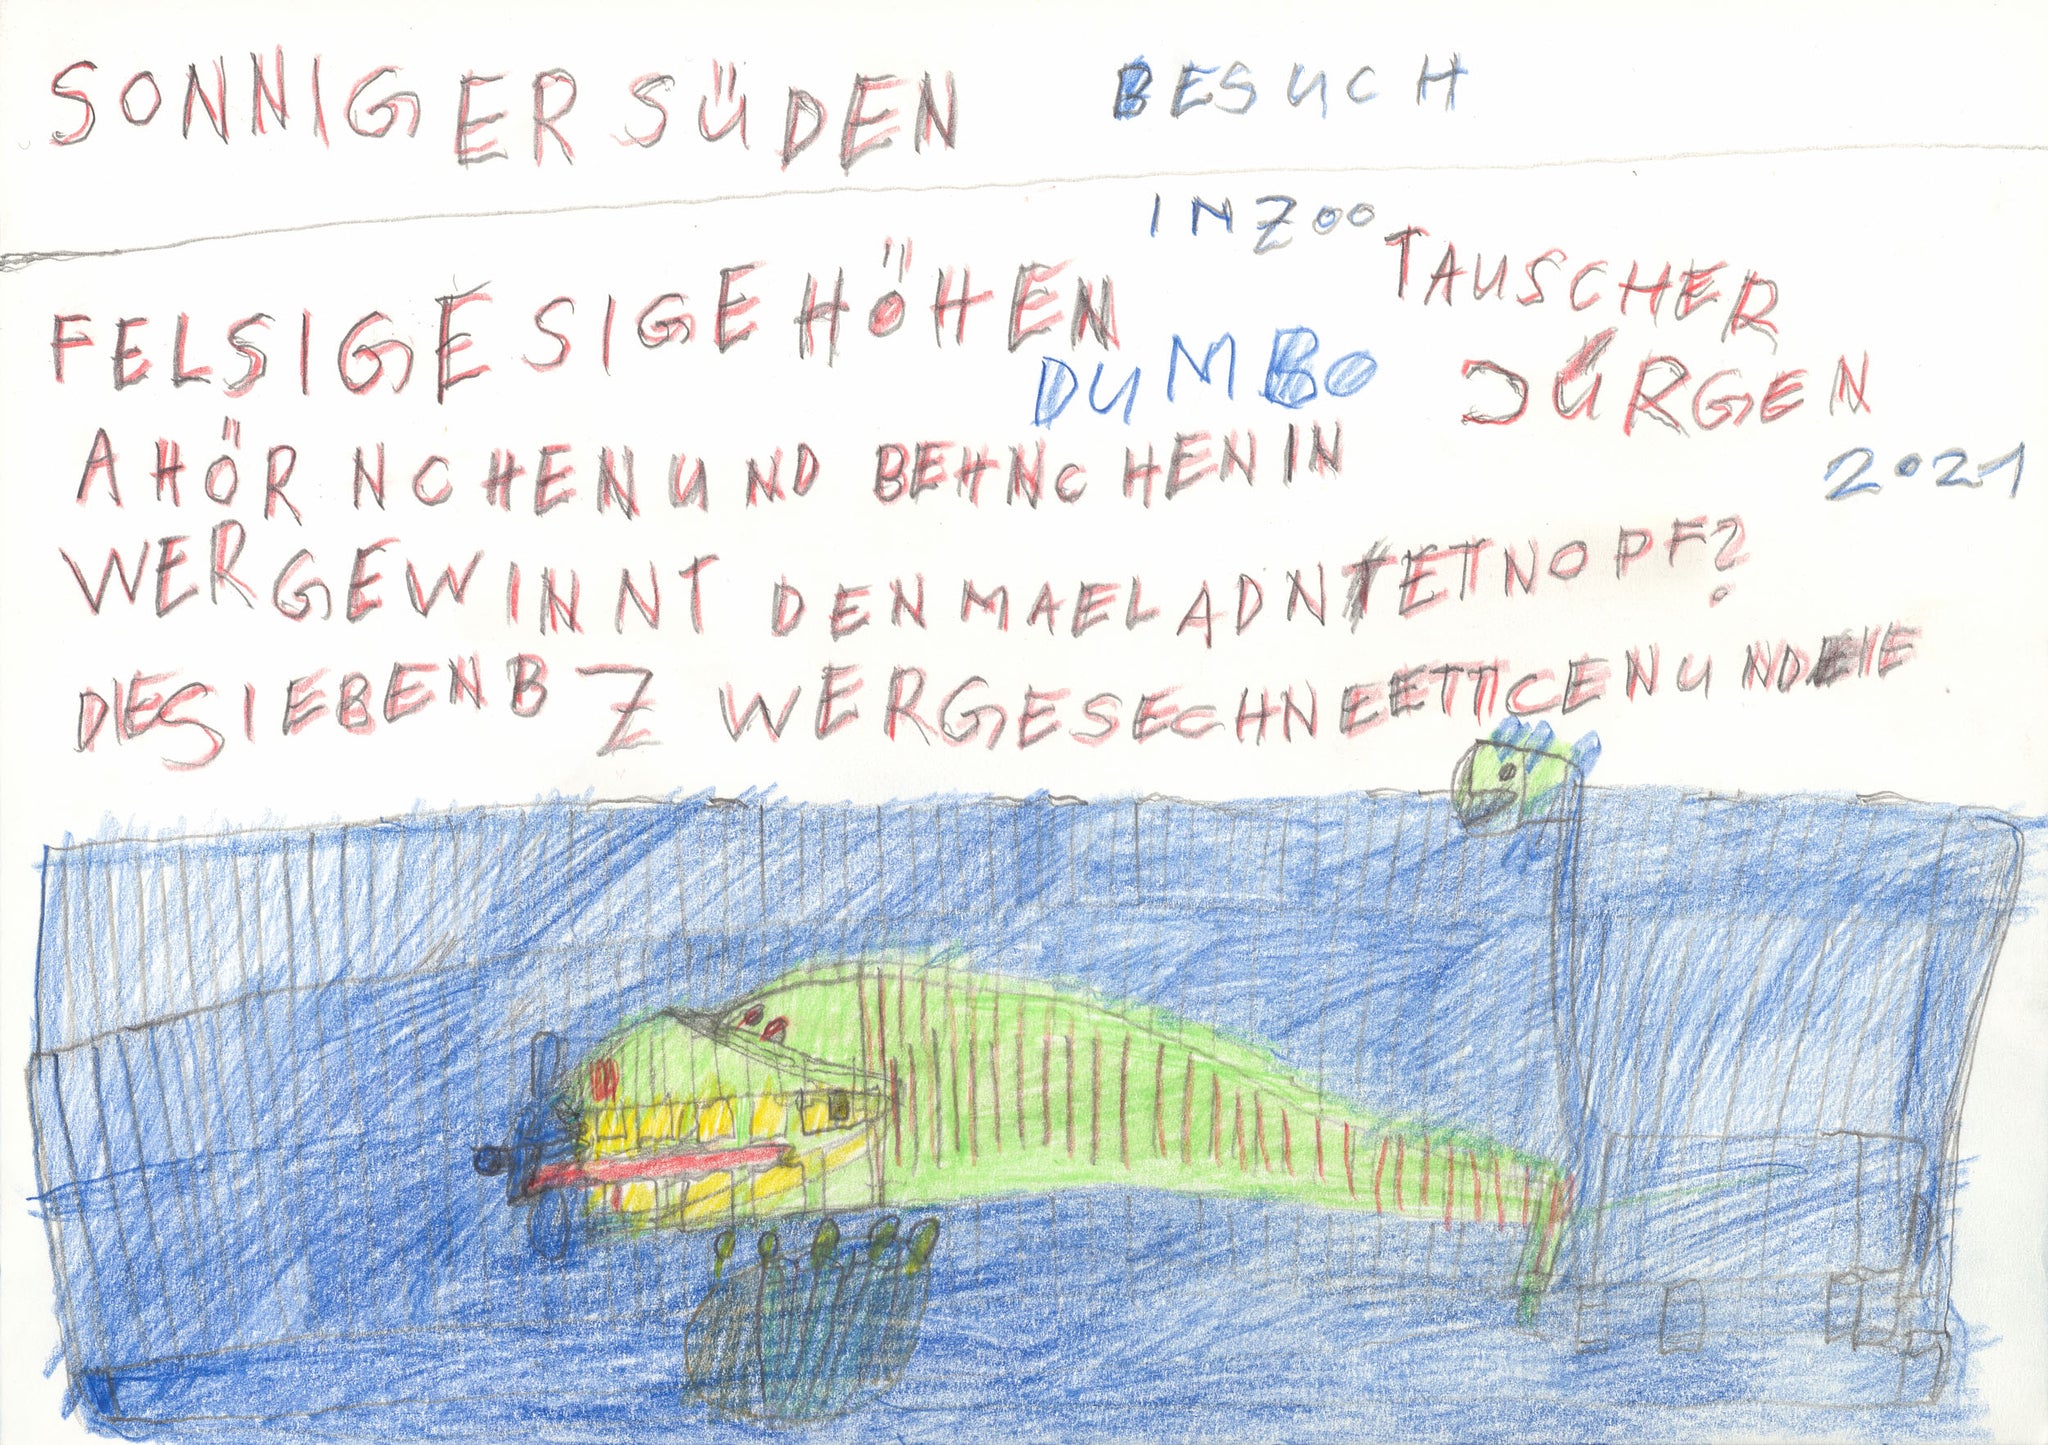 SONNIGER SÜDEN
BESUCH
IN ZOO
FELSIGESIGE HÖHEN
TAUSCHER
DUMBO
JÜRGEN
AHÖRNCHEN UND BEHNCHEN IN
2021
WER GEWINNT DEN MAELADNTETNOPF?
DIE SIEBENB ZWERGE SECHNEETTCEN UND DIE